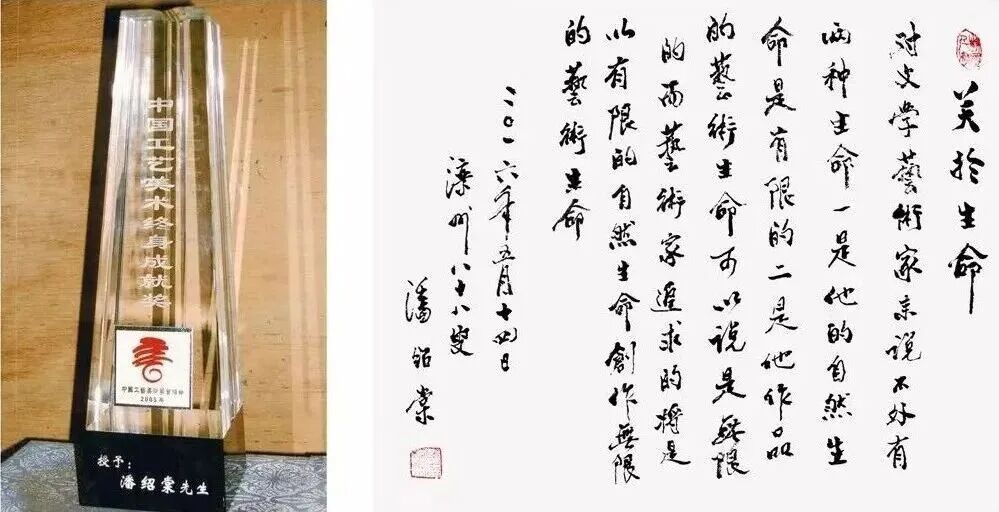 中国工艺美术终身成就奖
2005年
授予：
潘绍棠先生
关於生命
对文学藝術家来说不外有
两种生命一是他的自然生
命是有限的二是他作品
的藝術生命可以说是無限
的而藝術家追求的将是
以有限的自然生命創作無限
的藝術生命
二〇一六年五月十四日
滦州八十八叟
潘绍棠